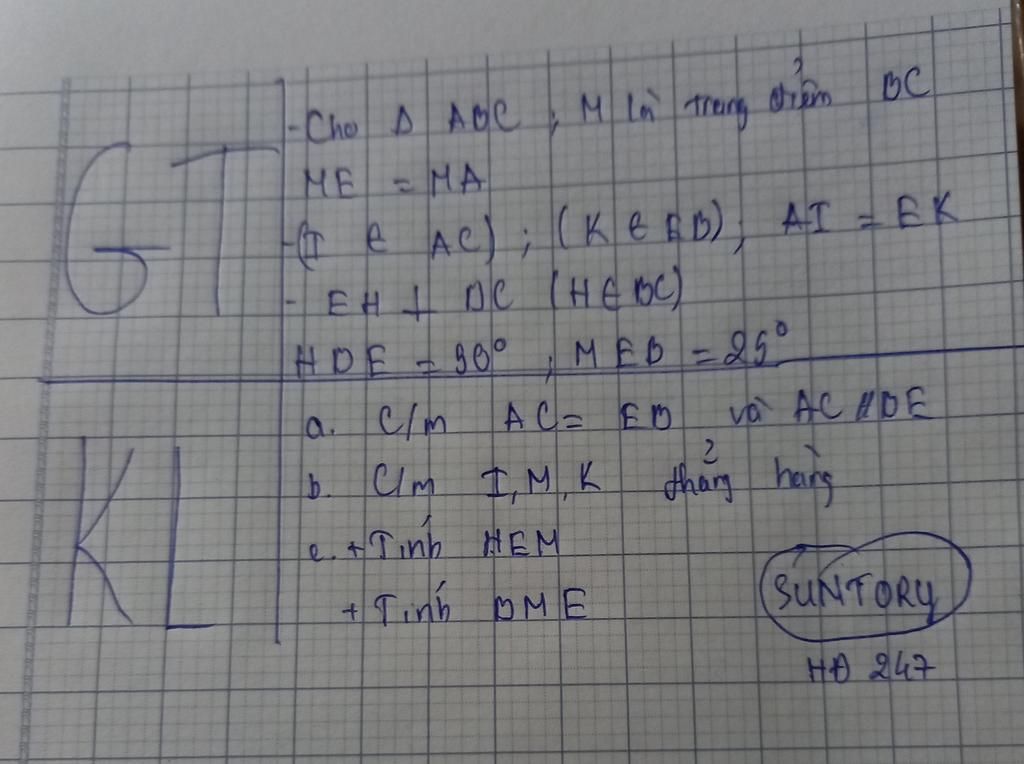 GT
- Cho Δ ABC, M là trung điểm BC
ME = MA
- (I ∈ AC); (K ∈ EB), AI = EK
- EH ⊥ BC (H ∈ BC)
HBE = 50°, MEB = 25°
KL
a. C/m AC = EB và AC // BE
b. C/m I, M, K thẳng hàng
c. + Tính HEM
+ Tính BME
SUNTORY
HĐ 247